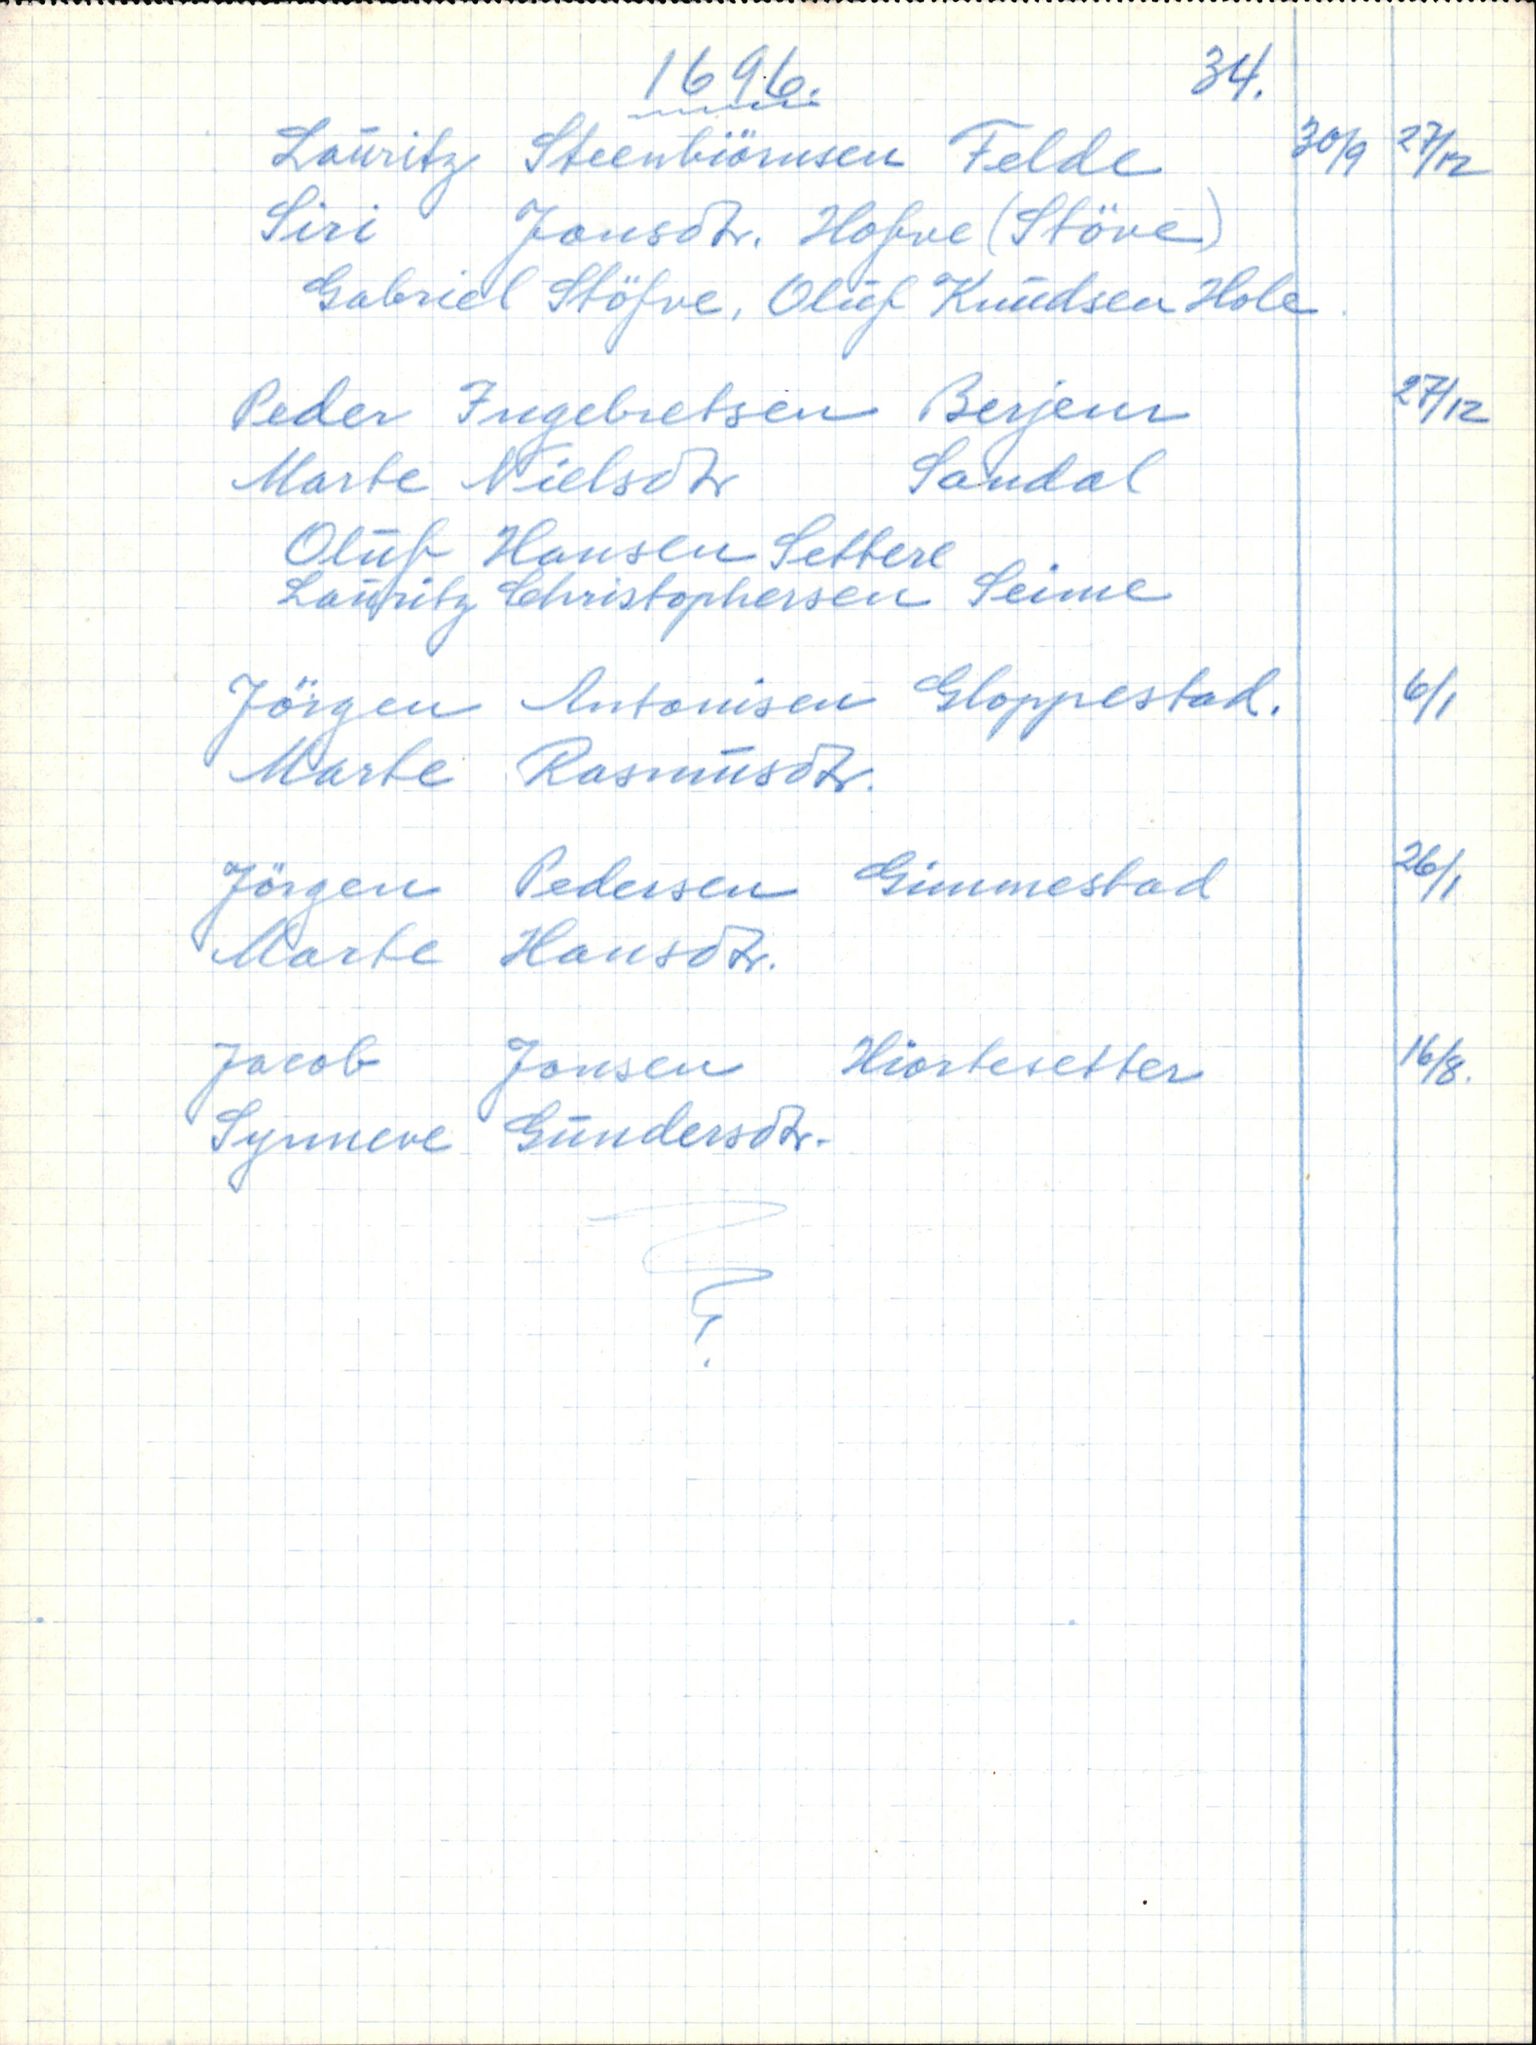 1696. 34.
Lauritz Steenbiörnsen Felde 30/9 27/12
Siri Jonsdtr. Hofve (Störe)
Gabriel Stöfve, Oluf Knudsen Hole
Peder Ingebretsen Berjem 27/12
Marte Nielsdtr Sandal
Oluf Hansen Settere
Lauritz Christophersen Seime
Jörgen Antonisen Gloppestad. 6/1
Marte Rasmusdtr.
Jörgen Pedersen Gimmestad 26/1
Marte Hansdtr.
Jacob Jonsen Hiortesetter 16/8.
Synneve Gundersdtr.